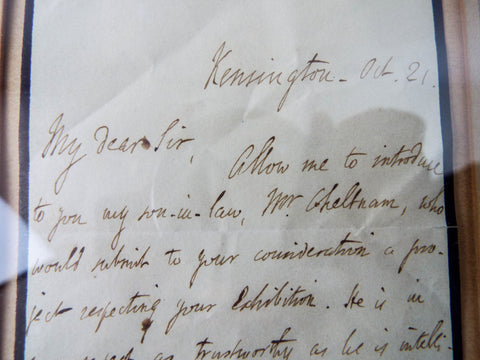 Kensington - Oct. 21.
My dear Sir,
Allow me to introduce
to you my son-in-law, Mr. Cheltnam, who
would submit to your consideration a pro-
ject respecting your Exhibition. He is in
respect as trustworthy as he is intelli-